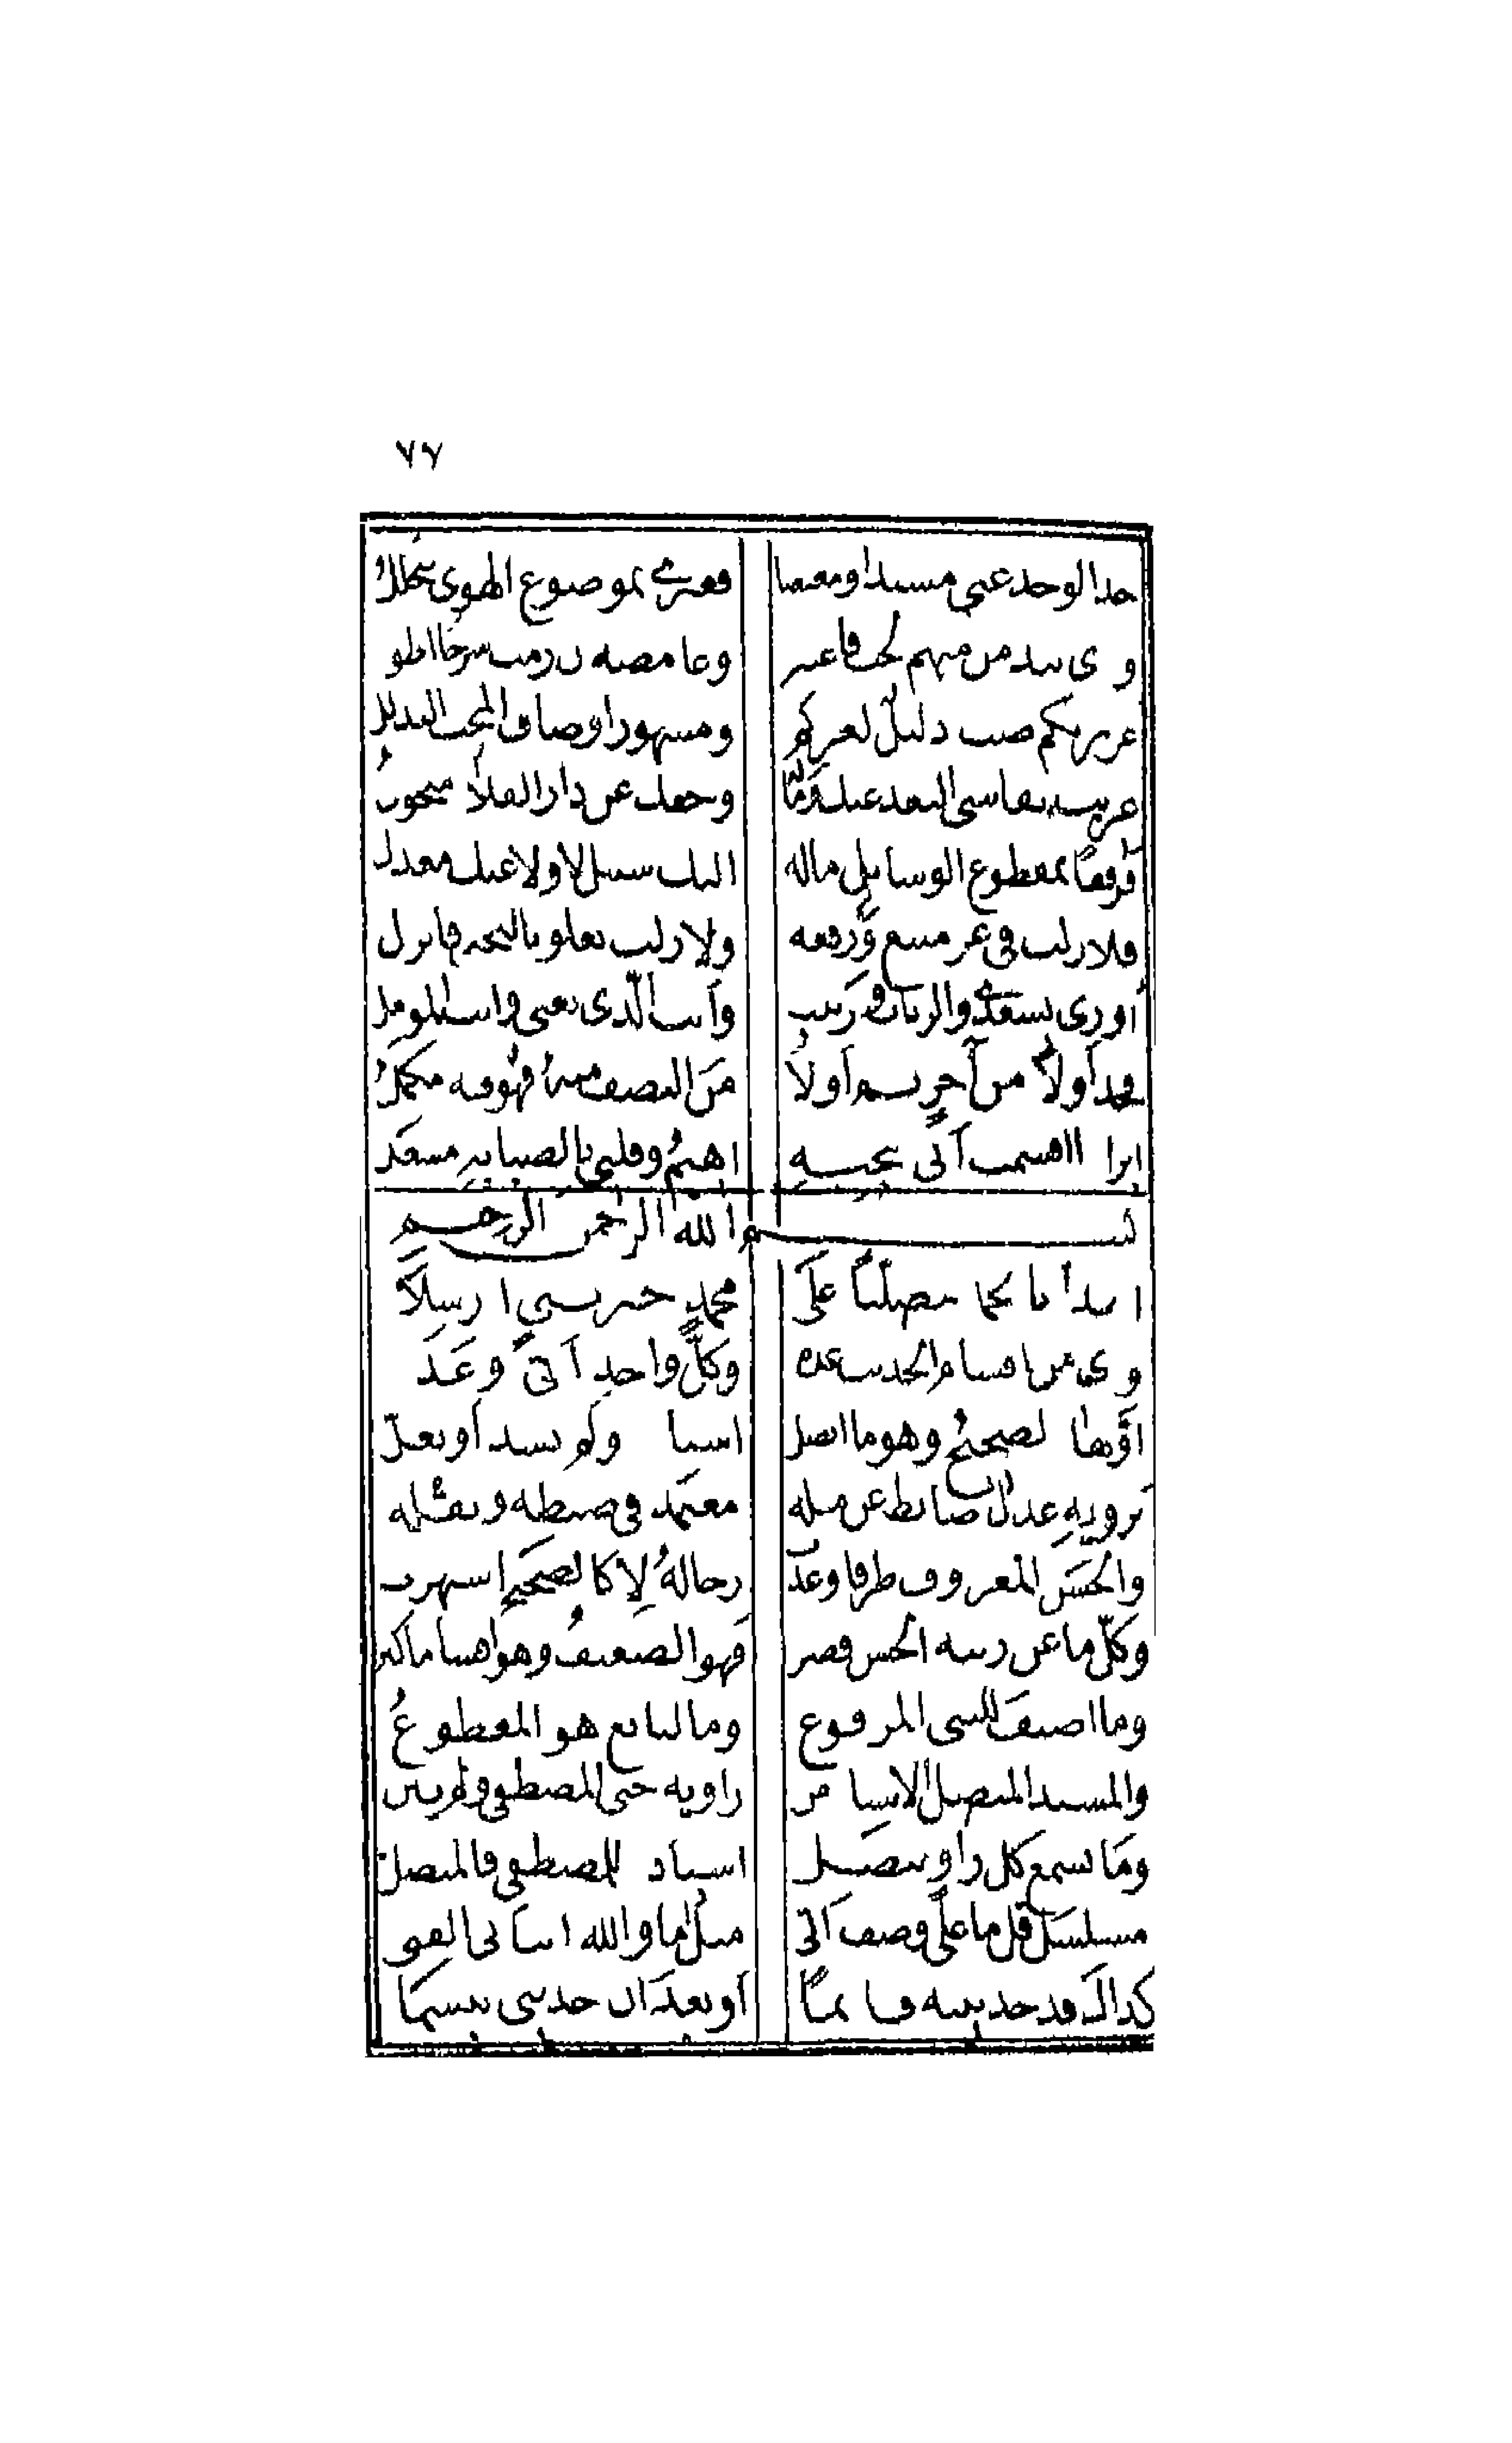 ٧٧
خذ الوجد عني مسندا ومعنعنا فغيري بموضوع الهوى يتحلل
وذي نبذ من مبهم الحب فاعتبر وغامضه ان رمت شرحا اطول
عزيز بكم صب ذليل لعزكم ومشهور اوصاف المحب التذلل
غريب يقاسي البعد عنك وما له وحقك عن دار القلا متحول
فرفقا بمقطوع الوسايل ماله اليك سبيل لا ولا عنك معدل
فلا زلت في عز منيع ورفعة ولا زلت تعلو بالتجني فانزل
اوري بسعدى والرباب وزينب وانت الذي تعنى وانت المومل
فخذ اولا من آخر ثم اولا من النصف منه فهو فيه مكمل
ابر اذا اقسمت اني بحبه اهيم وقلبي بالصبابة مشعل
بسم الله الرحمن الرحيم
ابدأ بالحمد مصليا على محمد خير نبي ارسلا
وذي من اقسام الحديث عده وكل واحد اتى وعده
اولها الصحيح وهو ما اتصل اسناده ولم يشذ او يعل
يرويه عدل ضابط عن مثله معتمد في ضبطه ونقله
والحسن المعروف طرقا وغدت رجاله لا كالصحيح اشتهرت
وكل ما عن رتبة الحسن قصر فهو الضعيف وهو اقساما كثر
وما اضيف للنبي المرفوع وما لتابع هو المقطوع
والمسند المتصل الاسناد من راويه حتى المصطفى ولم يبن
وما بسمع كل راو يتصل اسناده للمصطفى فالمتصل
مسلسل قل ما على وصف اتى مثل اما والله انباني الفتى
كذاك قد حدثنيه قائما او بعد ان حدثني تبسما